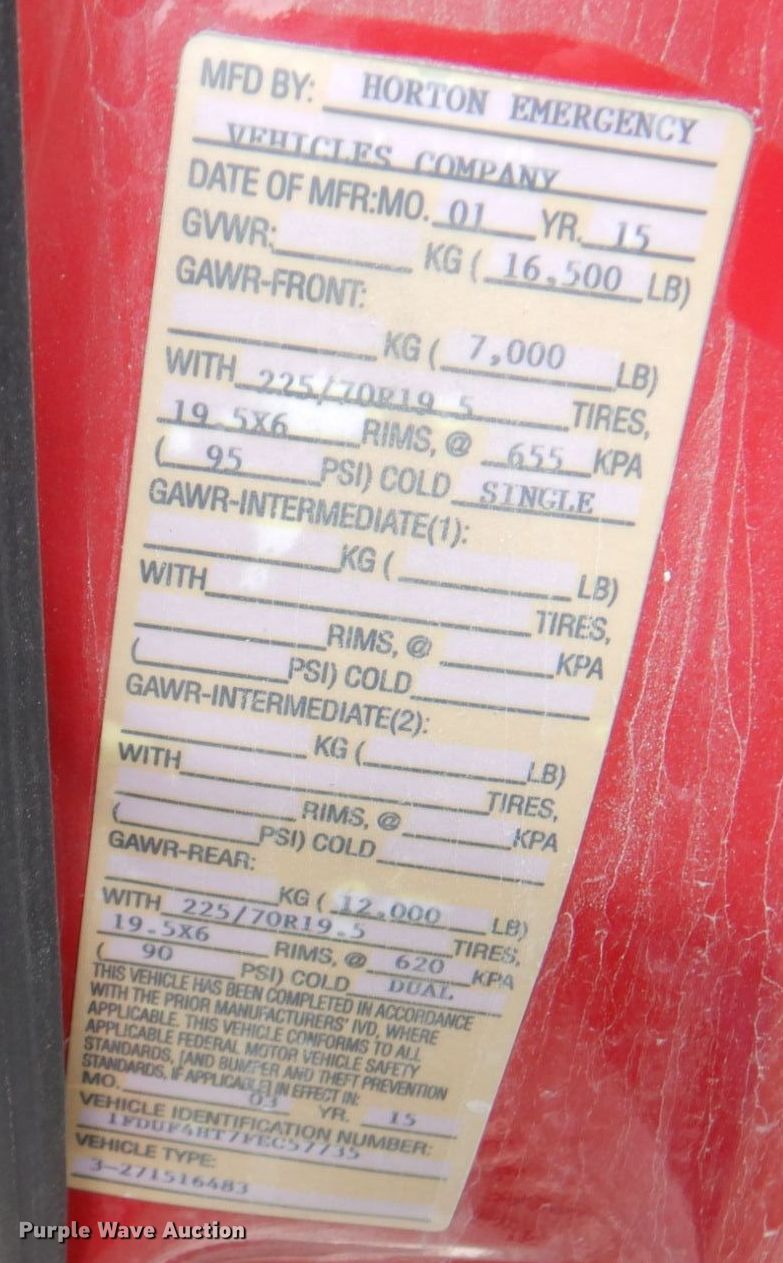 MFD BY: HORTON EMERGENCY
VEHICLES COMPANY
DATE OF MFR:MO. 01 YR. 15
GVWR: KG ( 16,500 LB)
GAWR-FRONT:
KG ( 7,000 LB)
WITH 225/70R19.5 TIRES,
19.5X6 RIMS, @ 655 KPA
( 95 PSI) COLD SINGLE
GAWR-INTERMEDIATE(1):
KG ( LB)
WITH TIRES,
RIMS, @ KPA
( PSI) COLD
GAWR-INTERMEDIATE(2):
KG ( LB)
WITH TIRES,
RIMS, @ KPA
( PSI) COLD
GAWR-REAR:
KG ( 12,000 LB)
WITH 225/70R19.5 TIRES,
19.5X6 RIMS, @ 620 KPA
( 90 PSI) COLD DUAL
THIS VEHICLE HAS BEEN COMPLETED IN ACCORDANCE
WITH THE PRIOR MANUFACTURERS' IVD, WHERE
APPLICABLE. THIS VEHICLE CONFORMS TO ALL
APPLICABLE FEDERAL MOTOR VEHICLE SAFETY
STANDARDS, [AND BUMPER AND THEFT PREVENTION
STANDARDS, IF APPLICABLE] IN EFFECT IN:
MO. 03 YR. 15
VEHICLE IDENTIFICATION NUMBER:
1FDUF4HT7FEC57735
VEHICLE TYPE:
3-271516483
Purple Wave Auction